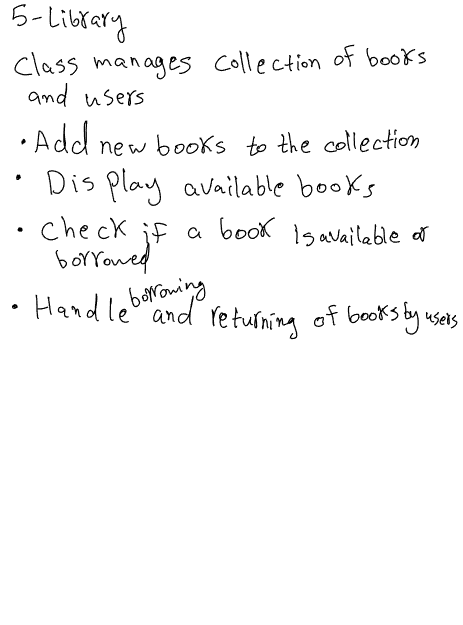 5-Library
Class manages collection of books
and users
• Add new books to the collection
• Display available books
• Check if a book Is available or
borrowed
• Handle borrowing and returning of books by users